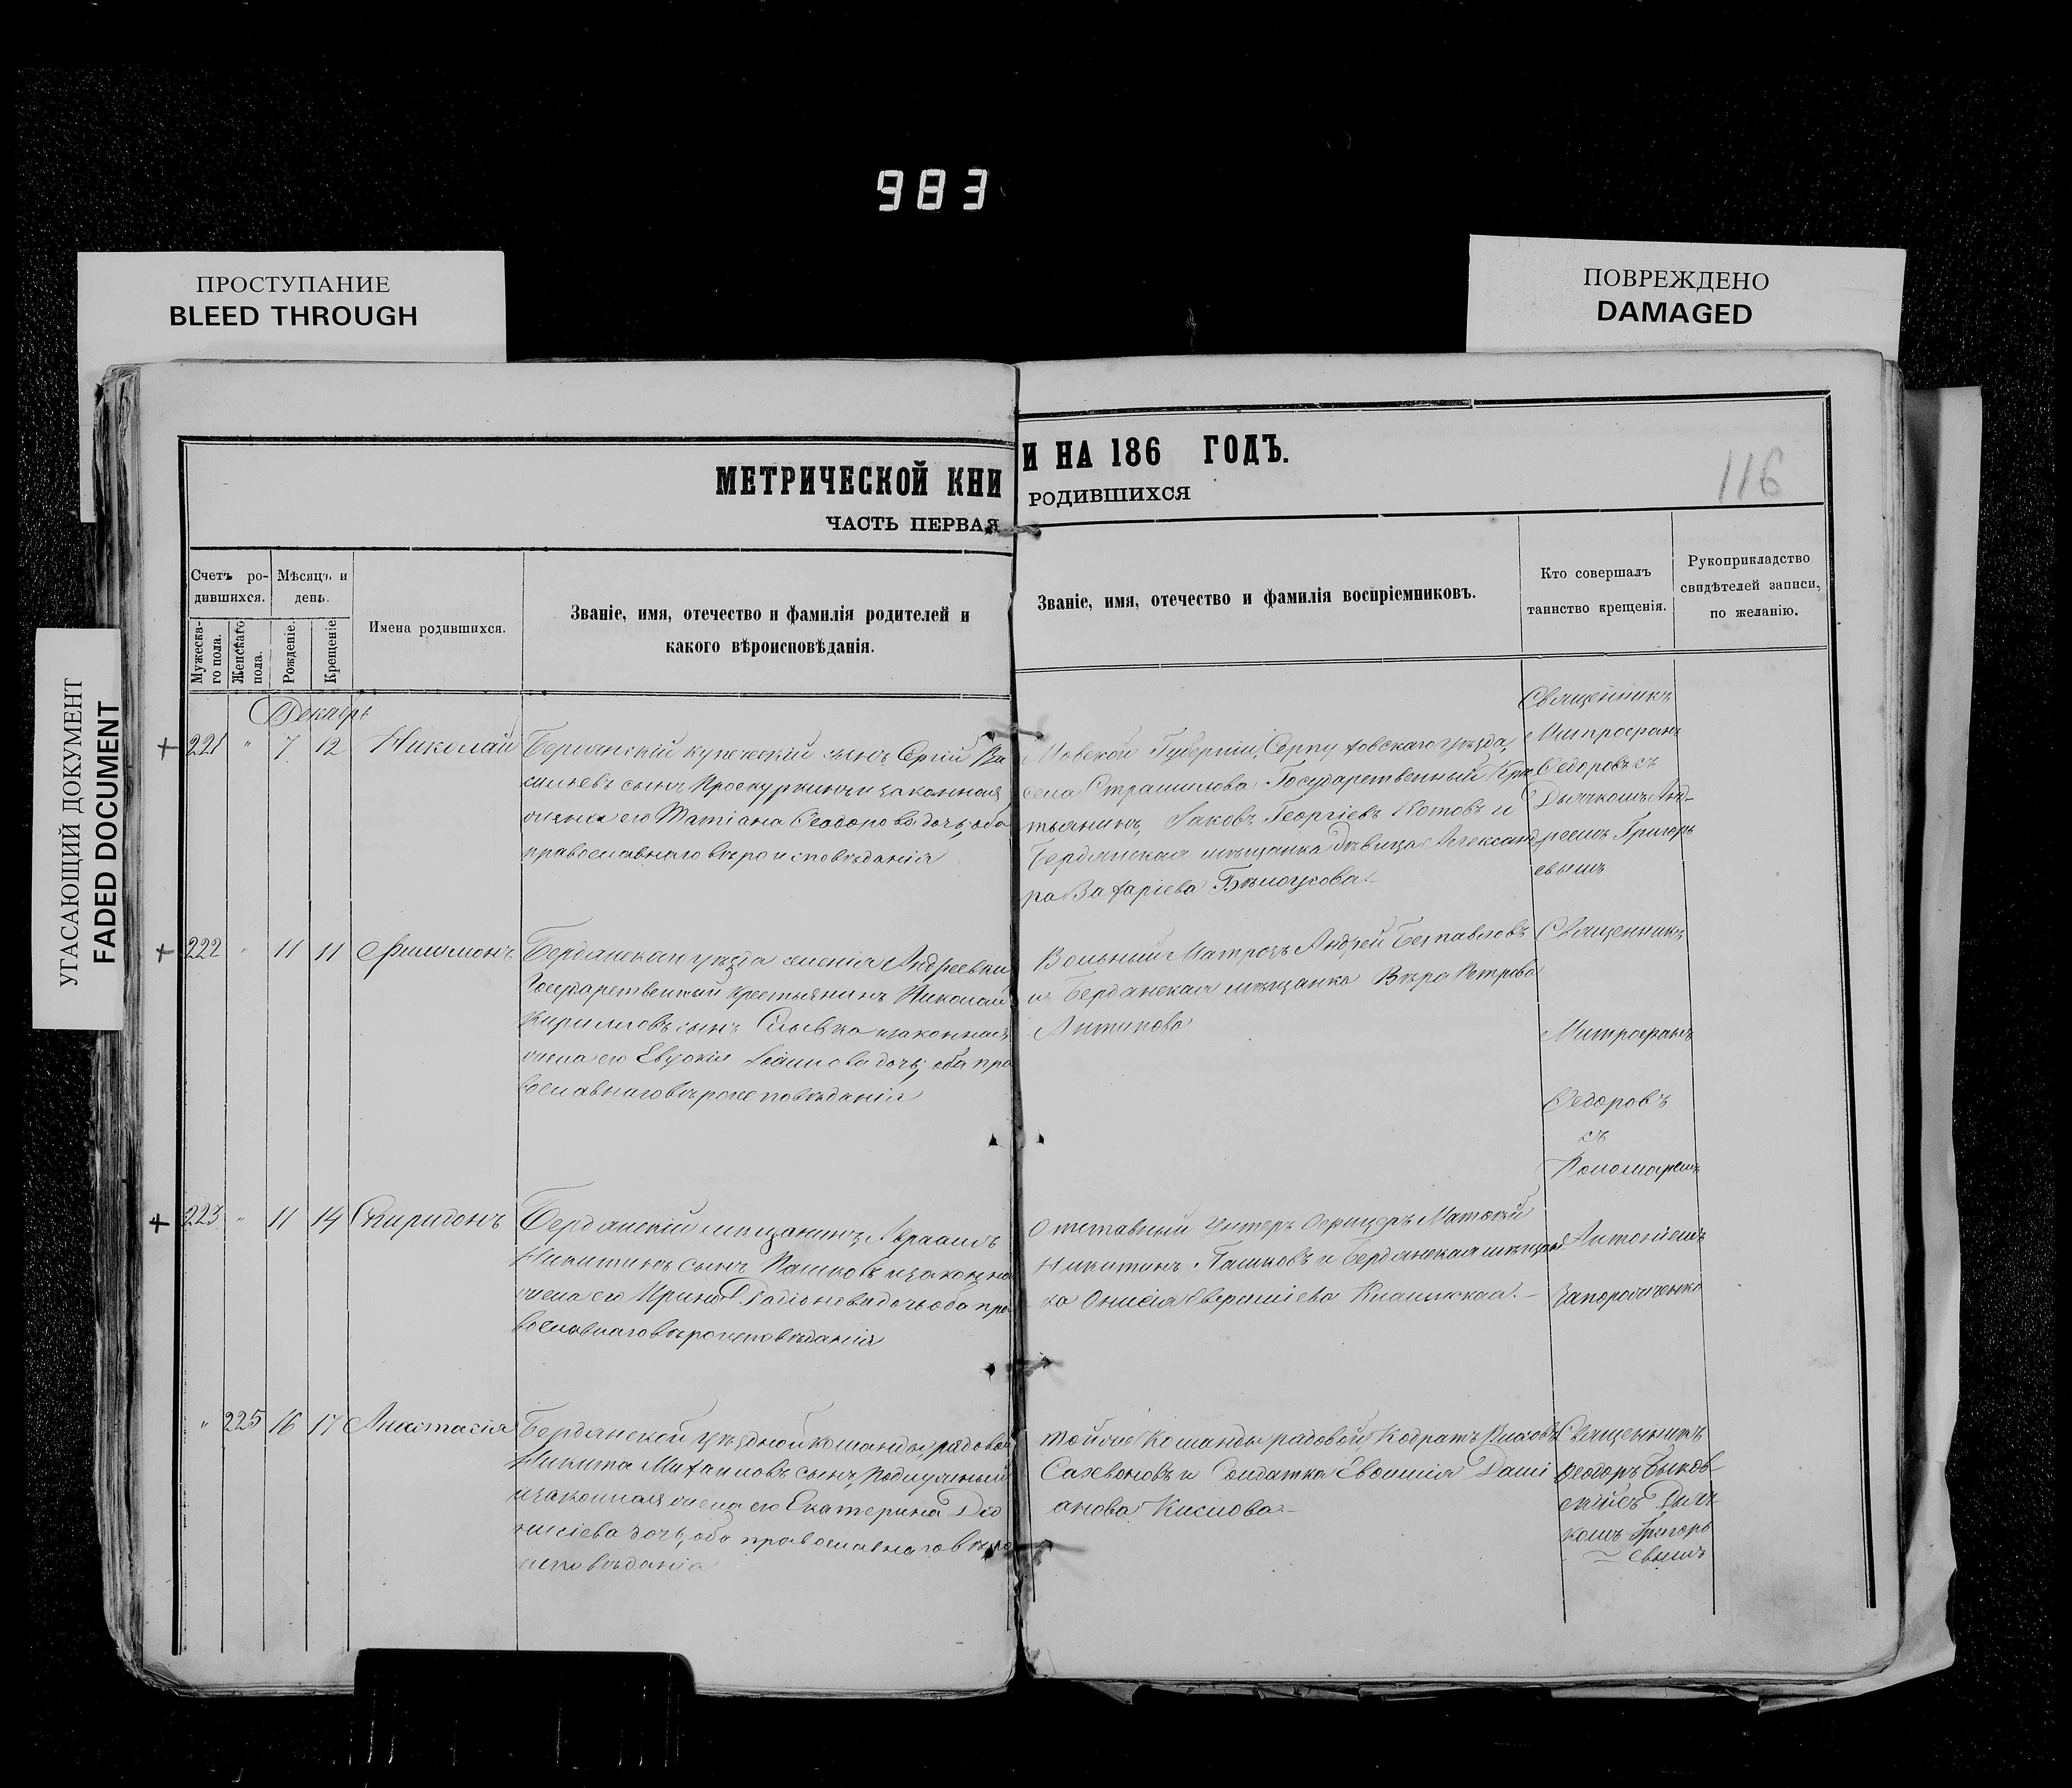 983
ПРОСТУПАНИЕ
BLEED THROUGH
ПОВРЕЖДЕНО
DAMAGED
УГАСАЮЩИЙ ДОКУМЕНТ
FADED DOCUMENT
МЕТРИЧЕСКОЙ КНИ
И НА 186 ГОДЪ.
116
ЧАСТЬ ПЕРВАЯ
РОДИВШИХСЯ
Счетъ ро-
дившихся.
Мѣсяцъ и
день.
Мужеска-
го пола.
Женскаго
пола.
Рожденіе.
Крещеніе.
Имена родившихся.
Званіе, имя, отечество и фамилія родителей и
какого вѣроисповѣданія.
Званіе, имя, отечество и фамилія воспріемниковъ.
Кто совершалъ
таинство крещенія.
Рукоприкладство
свидѣтелей записи,
по желанію.
Декабрь
221 " 7 12 Николай
Бердянскій купеческій сынъ Сергій Ва
сильевъ сынъ Проскуринъ и законная
жена его Татіана Ѳеодорова дочь, оба
православнаго вѣроисповѣданія
Губерніи, Серпуховскаго уѣзда,
села Страшилова Государственный Кре
тьянинъ, Іаковъ Георгіевъ Котовъ и
Бердянская мѣщанка дѣвица Александ
ра Захаріева Бѣлоусова.
Священникъ
Митрофанъ
Ѳедоровъ съ
Дьячкомъ Анд-
реемъ Григорь
евымъ
222 " 11 11 Филимонъ
Бердянскаго уѣзда имѣнія Андреевки
Государственный Крестьянинъ Николай
Кирилловъ сынъ и законная
жена его Евдокія Іоаннова дочь, оба пра
вославнаго вѣроисповѣданія
Вольный Матросъ Андрей Безпавловъ
и Бердянская мѣщанка Вѣра Петрова
Антипова
Священникъ
Митрофанъ
Ѳедоровъ
съ
Пономаремъ
223 " 11 14 Спиридонъ
Бердянскій мѣщанинъ Авраамъ
Никитинъ сынъ Пашковъ и законная
жена его Ирина Родіонова дочь оба пра
вославнаго вѣроисповѣданія
Отставный Унтеръ Офицеръ Матѳей
Никитинъ Пашковъ и Бердянская мѣщан
ка
Антоніемъ
Запорожченко
" 225 16 17 Анастасія
Бердянской уѣздной команды, рядовой
Никита Михаиловъ сынъ,
и законная жена его Екатерина Діо
нисіева дочь, оба православнаго вѣро
исповѣданія
той же Команды рядовой Кодратъ
и Солдатка Евѳимія Дамі
анова Кислова.
Священникъ
Ѳеодоръ Быков
скій съ Дьяч
комъ Григорь
евымъ